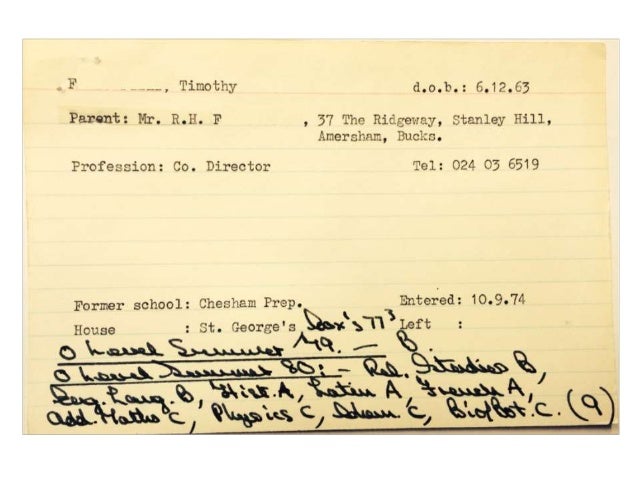 F , Timothy d.o.b.: 6.12.63
Parent: Mr. R.H. F , 37 The Ridgeway, Stanley Hill,
Amersham, Bucks.
Profession: Co. Director Tel: 024 03 6519
Former school: Chesham Prep. Entered: 10.9.74
House : St. George's 77³ Left :
O Level Summer '79. — B
O Level Summer 80:- Rel. Studies B,
Eng. Lang. B, Hist. A, Latin A, French A,
Add. Maths C, Physics C, Chem. C, Biol/Bot. C. (9)